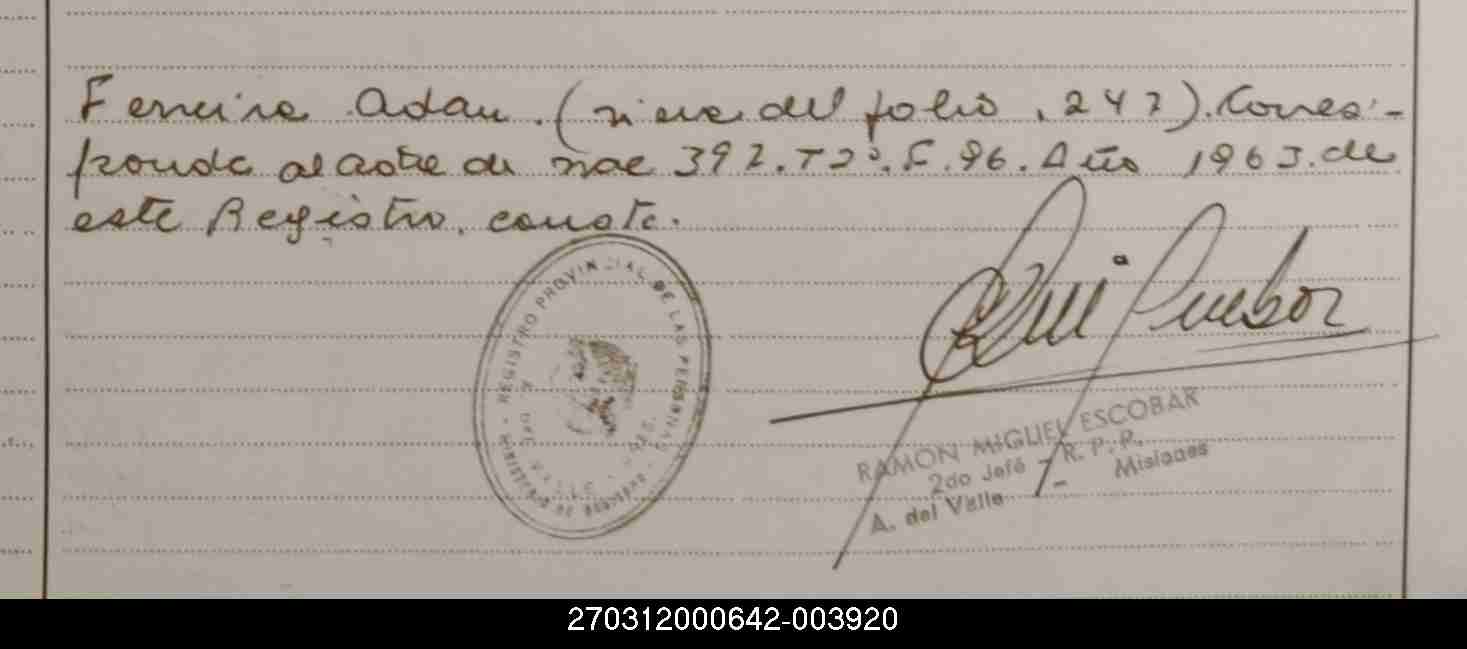 Ferreira Adan. (viene del folio .247). Corres-
ponde al acta de nac 392. Tº 2º. F. 96. Año 1963. de
este Registro. conste.
REGISTRO PROVINCIAL DE LAS PERSONAS
RAMON MIGUEL ESCOBAR
2do Jefe - R. P. P.
A. del Valle - Misiones
270312000642-003920